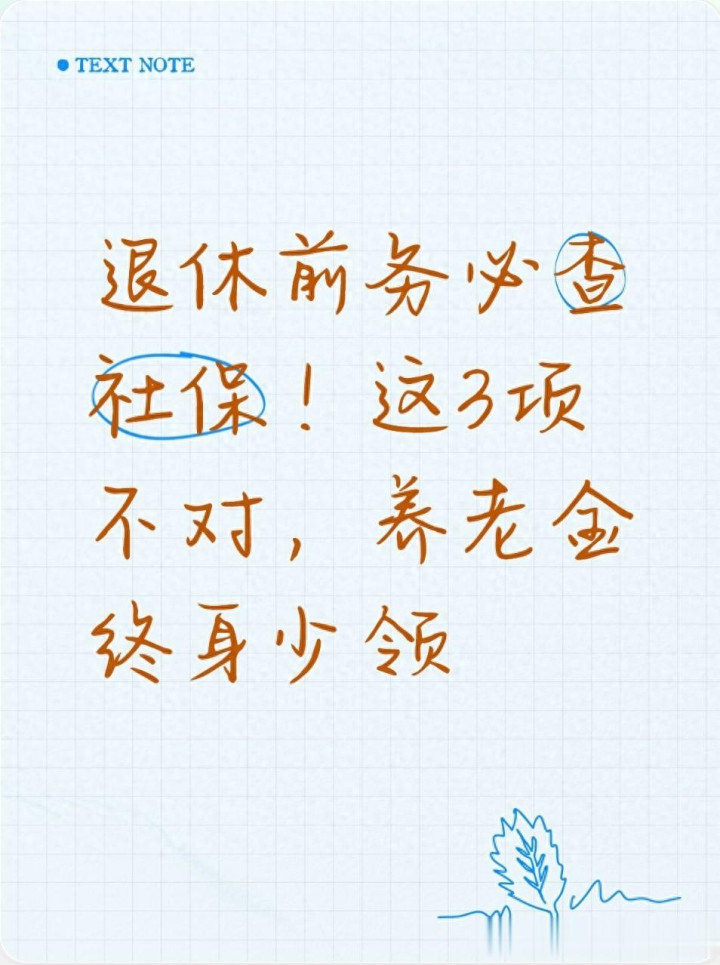 TEXT NOTE
退休前务必查
社保！这3项
不对，养老金
终身少领